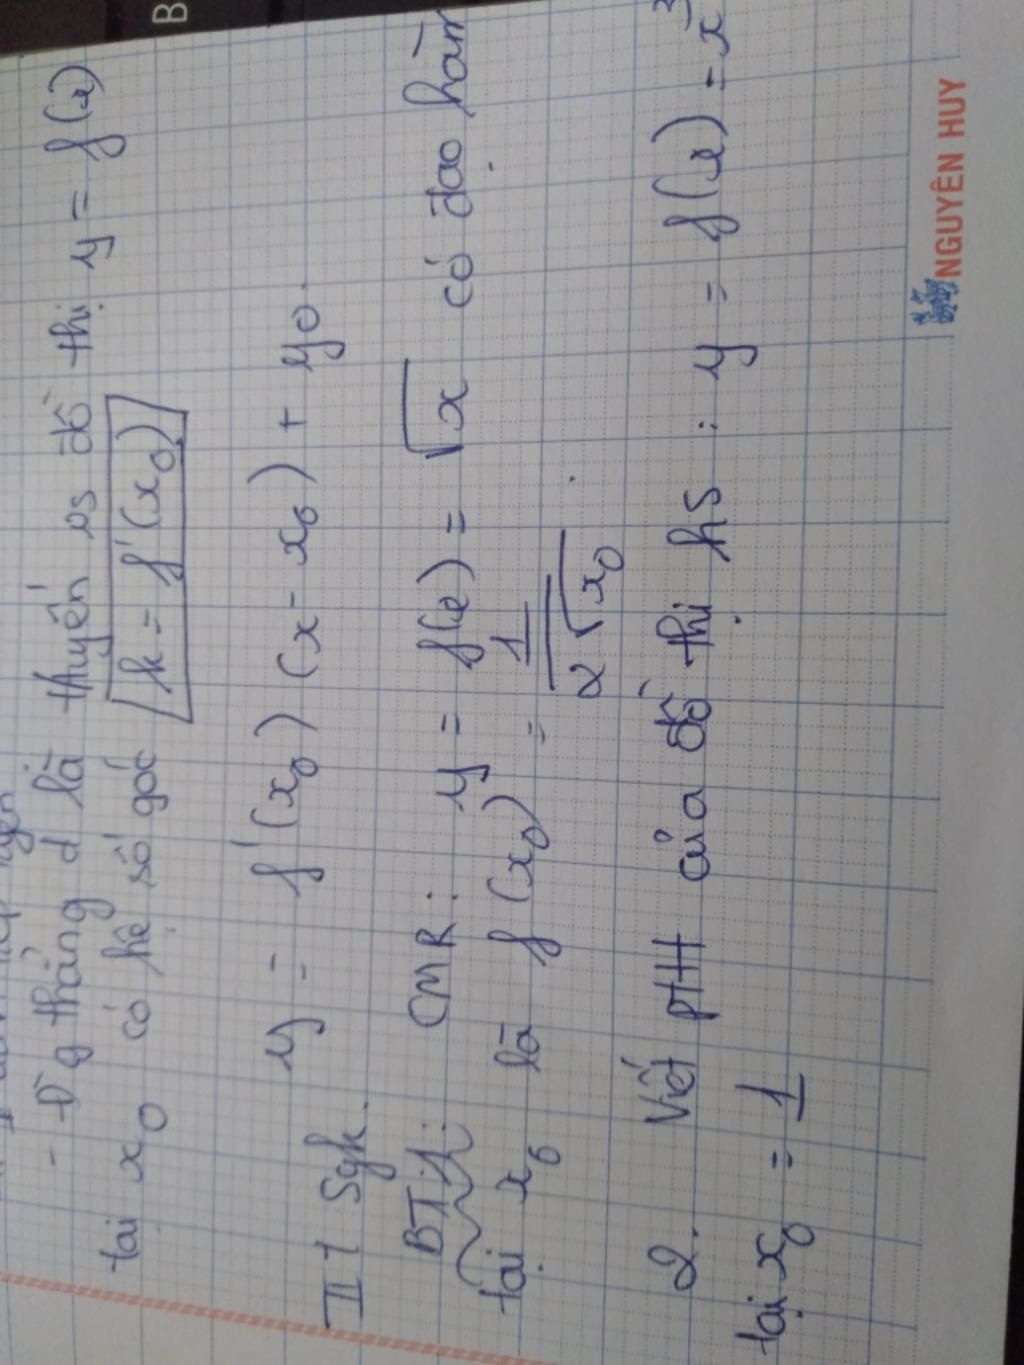 - Đg thẳng d là thuyến vs đồ thị y = f(x)
tại x₀ có hệ số góc k = f'(x₀)
y = f'(x₀) (x - x₀) + y₀.
II Sgk.
BT1: CMR: y = f(x) = √x có đạo hàm
tại x₀ là f (x₀) = 1/(2√x₀).
2. Viết ptH của đồ thị hs : y = f(x) = x³
tại x₀ = 1
NGUYÊN HUY
B